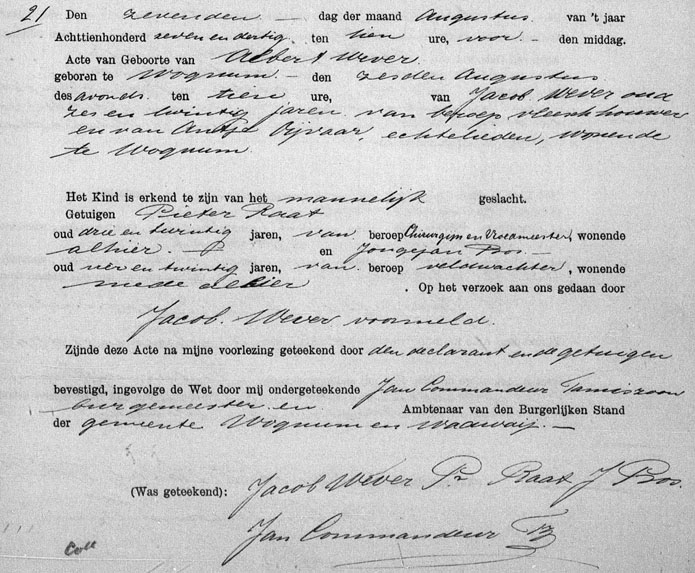 21 Den zevenden — dag der maand Augustus van 't jaar
Achttienhonderd zeven en dertig, ten tien ure, voor — den middag.
Acte van Geboorte van Albert Wever.
geboren te Wognum — den zesden Augustus
des avonds ten tien ure, van Jacob Wever oud
zes en twintig jaren van beroep vleeschhouwer
en van Antje Vijvaar, echtelieden, wonende
te Wognum
Het Kind is erkend te zijn van het mannelijk geslacht.
Getuigen Pieter Raat
oud drie en twintig jaren, van beroep Chirurgijn en Vroedmeester, wonende
alhier — en Jongejan Bos —
oud vier en twintig jaren, van beroep veldwachter, wonende
mede alhier . Op het verzoek aan ons gedaan door
Jacob Wever voormeld.
Zijnde deze Acte na mijne voorlezing geteekend door den declarant en de getuigen
bevestigd, ingevolge de Wet door mij ondergeteekende Jan Commandeur Tamiszoon
burgemeester en Ambtenaar van den Burgerlijken Stand
der gemeente Wognum en Wadwaij. —
(Was geteekend): Jacob Wever Pr Raat J Bos.
Jan Commandeur Tz
Coll